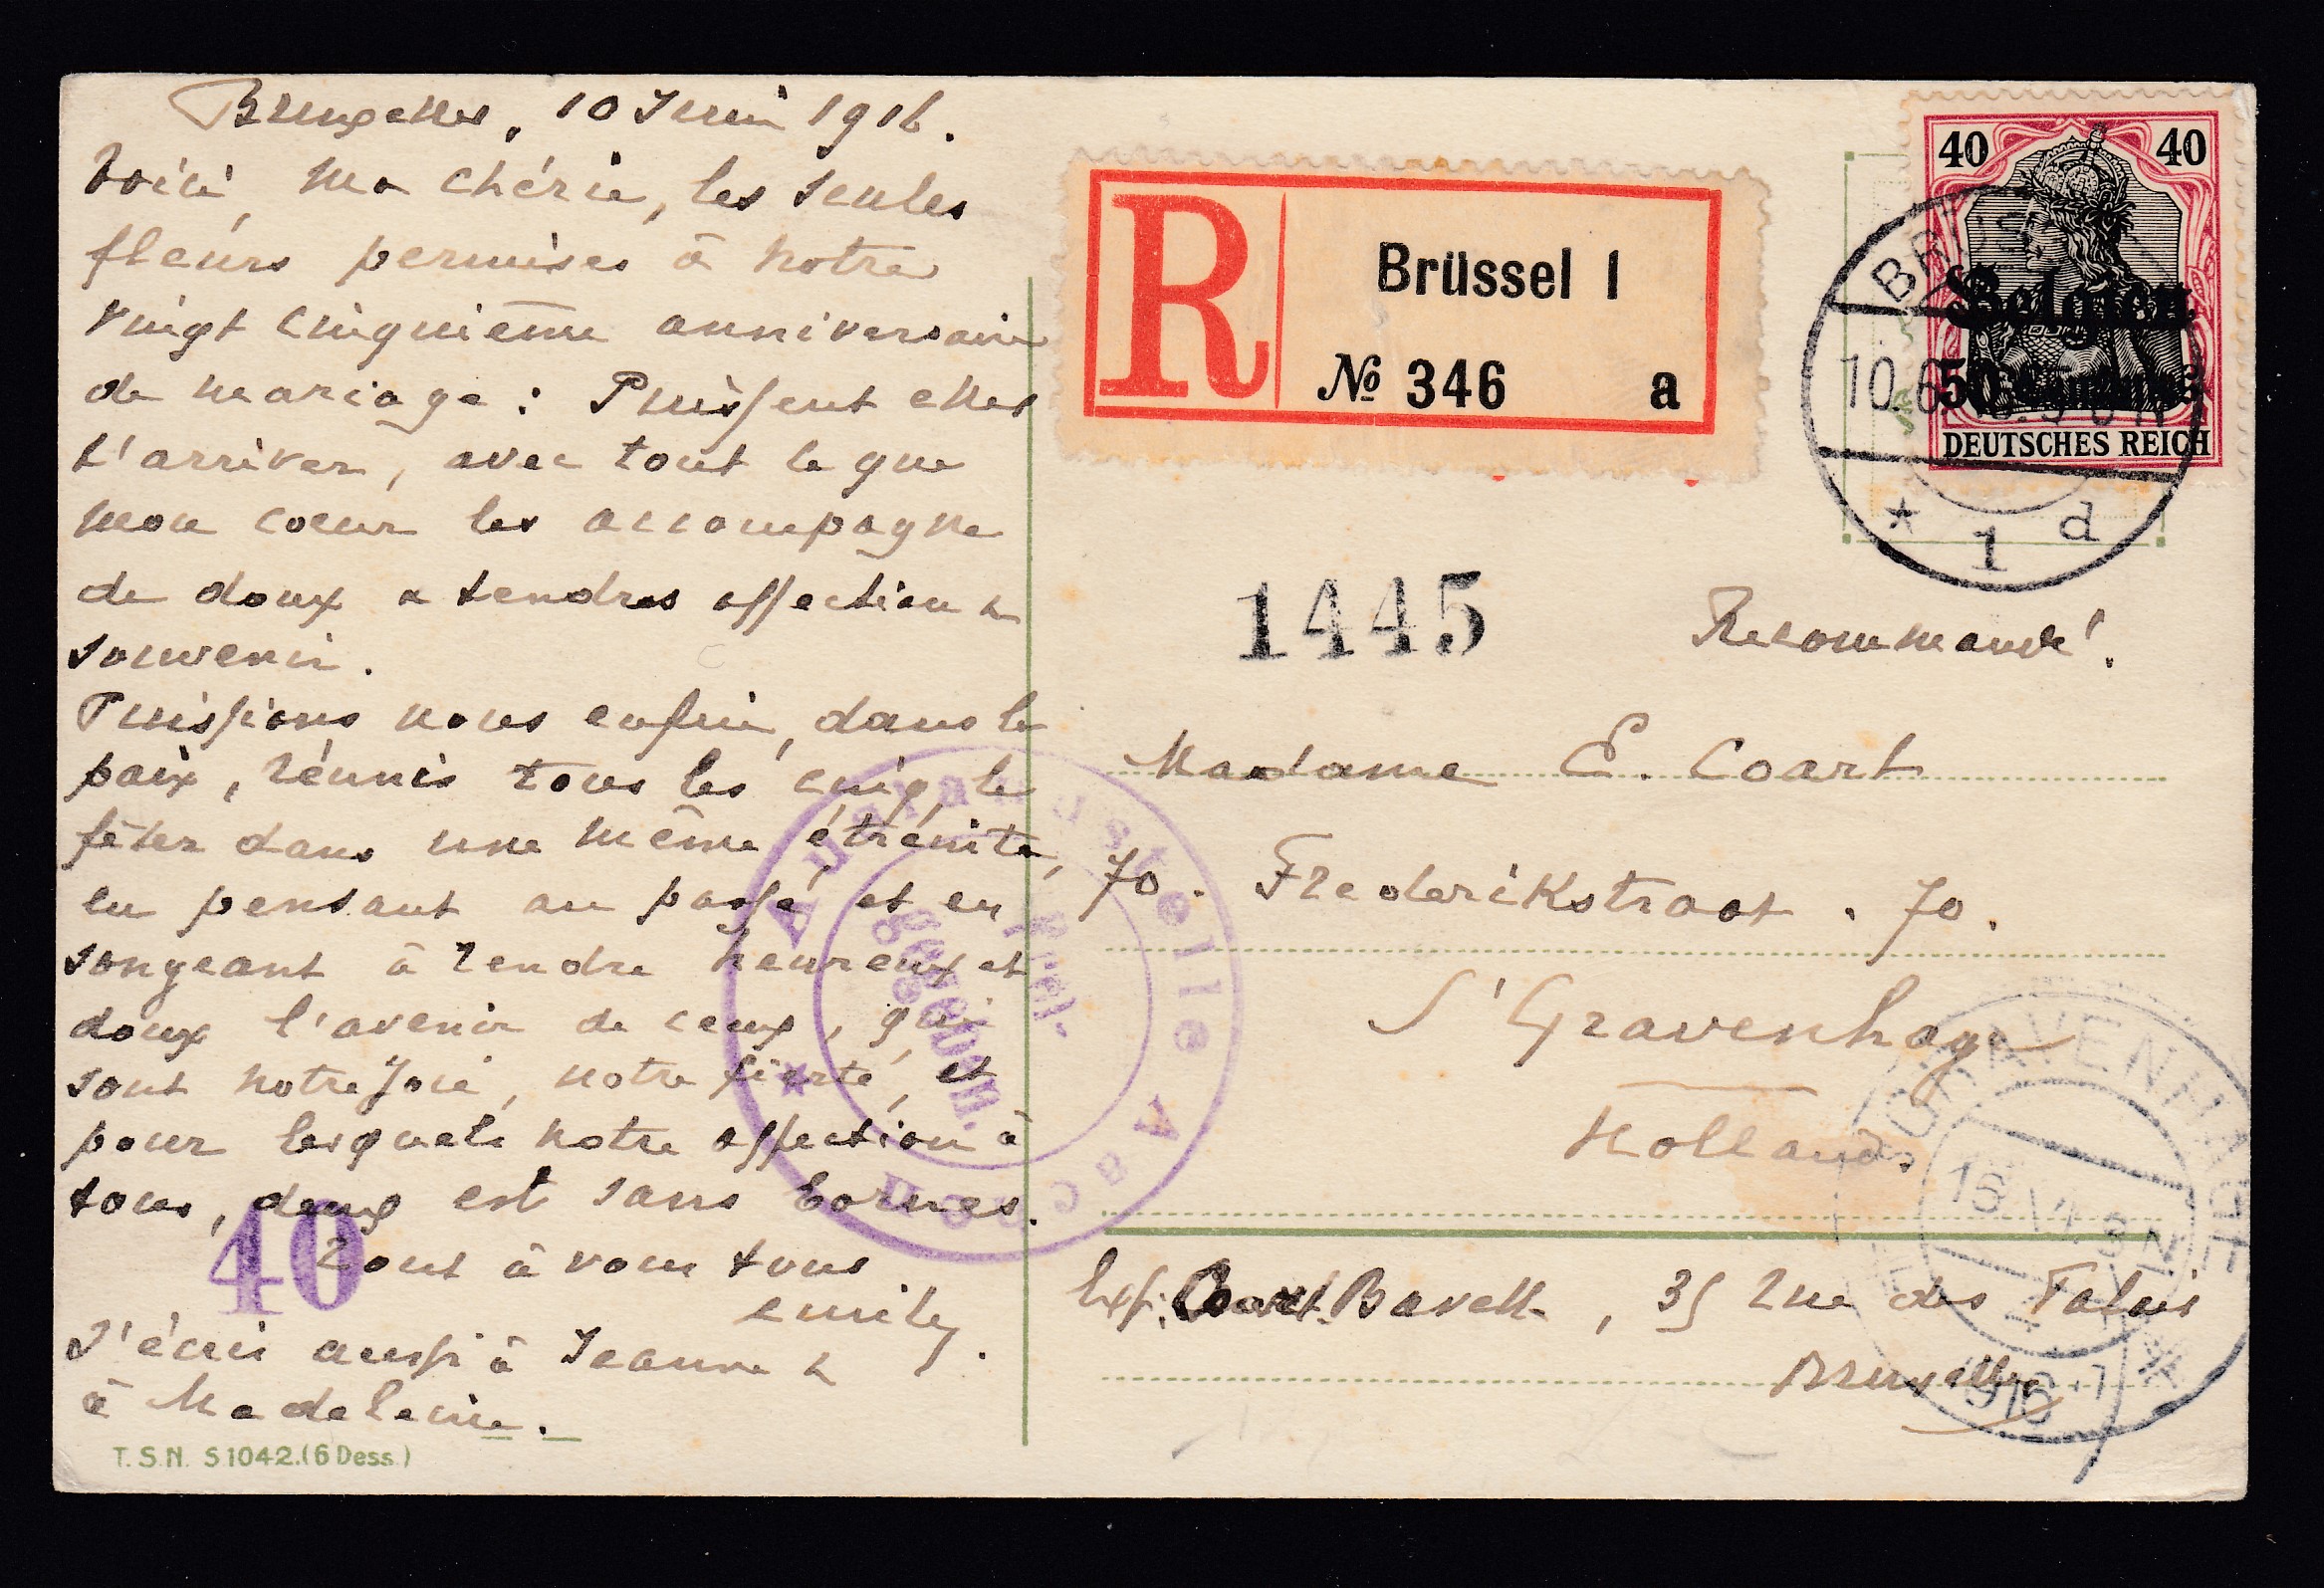 Bruxelles, 10 Juin 1916.
Voici, ma chérie, les seules
fleurs permises à notre
vingt cinquième anniversaire
de mariage : Puissent elles
t'arriver, avec tout ce que
mon coeur les accompagne
de doux & tendres affection &
souvenir.
Puissions nous enfin, dans la
paix, réunis tous les cinq, le
fêter dans une même étreinte,
en pensant au passé et en
songeant à rendre heureux et
doux l'avenir de ceux, qui
sont notre joie, notre fierté, et
pour lesquels notre affection à
tous, deux est sans bornes.
Tout à vous tous
Emile.
J'écris aussi à Jeanne &
à Madeleine.
40
T.S.N. S1042.(6 Dess.)
R
Brüssel 1
№ 346 a
40 40
Belgien
50 Centimes
DEUTSCHES REICH
BRÜSSEL
10.6.
* 1 d
1445
Recommandé!
Madame E. Coart
70. Frederikstraat. 70.
S'Gravenhage
Holland.
Exp: Coart 35 rue des Palais
Bruxelles
Auslandstelle Aachen
Freigegeben.
'S GRAVENHAGE
1916